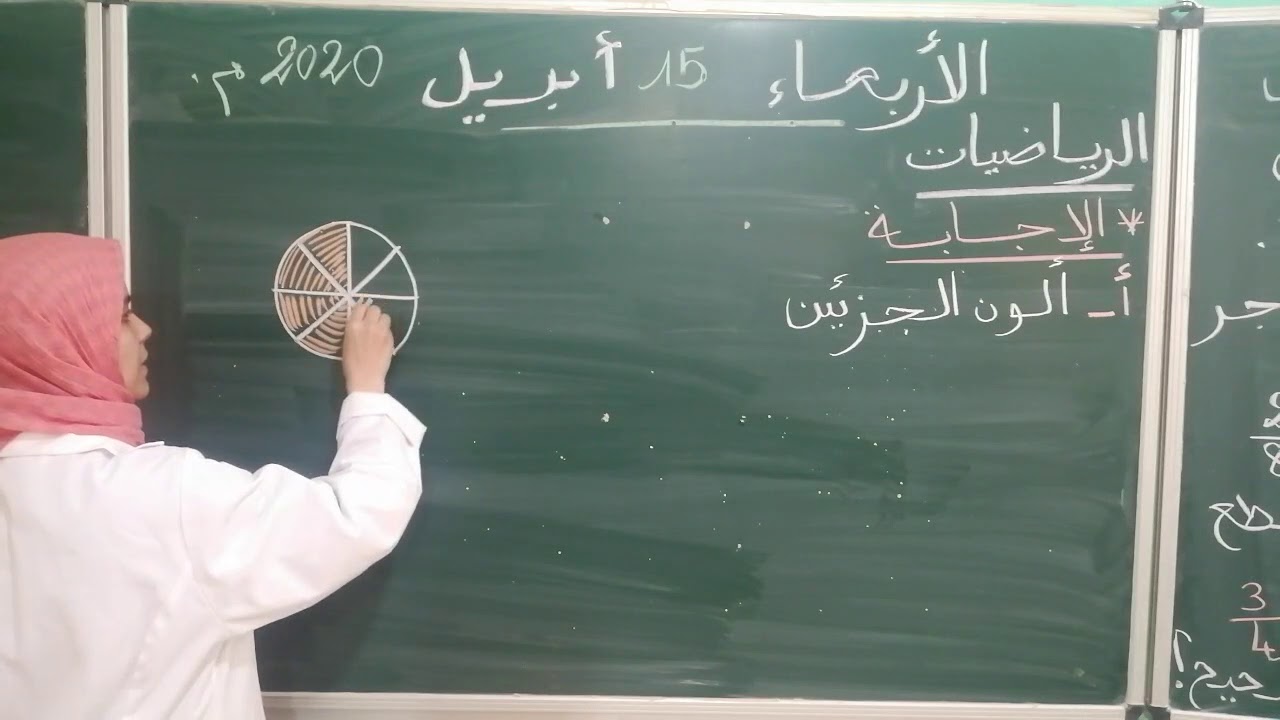 الأربعاء 15 أبريل 2020 م.
الرياضيات
* الإجابة
أ - ألون الجزئين
جر
8
قطع
3
4
صحيح؟